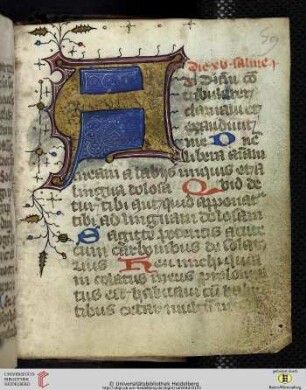 59
Die xv psalmi
A D Dn̄m cō
tribularer
clamaui et
exaudiuit
me Dn̄e
libera a͞iam
meam a labijs iniquis et a
lingua dolosa Quid de
tur tibi aut quid apponatur
tibi ad linguam dolosam
Sagitte potentis acute
cum carbonibus desolato
rijs Heu michi quia
incolatus meus prolonga
tus est habitaui cū habitā
tibus cedar multū in
UNIVERSITÄTS-
BIBLIOTHEK
HEIDELBERG
© Universitätsbibliothek Heidelberg